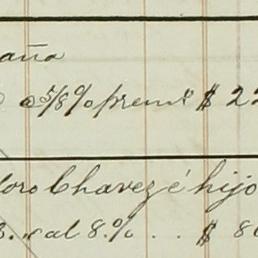 aña
a 5/8 % prem. $ 22
doro Chavez é hijo
al 8.% .. $ 80